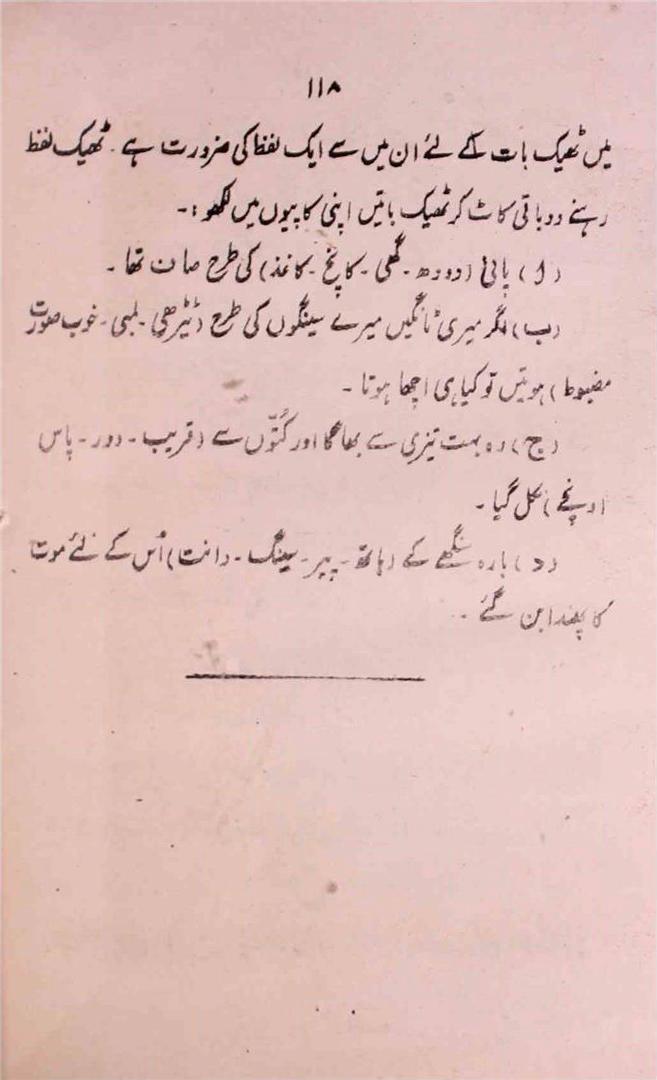 ۱۱۸
میں ٹھیک بات کے لئے ان میں سے ایک لفظ کی ضرورت ہے ۔ ٹھیک لفظ
رہنے دو باقی کاٹ کر ٹھیک باتیں اپنی کاپیوں میں لکھو :۔
(ا) پانی (دودھ ۔ گھی ۔ کانچ ۔ کاغذ) کی طرح صاف تھا ۔
(ب) مگر میری ٹانگیں میرے سینگوں کی طرح (ٹیڑھی ۔ لمبی ۔ خوب صورت
مضبوط) ہوتیں تو کیا ہی اچھا ہوتا ۔
(ج) وہ بہت تیزی سے بھاگا اور کُتّوں سے (قریب ۔ دور ۔ پاس
اونچے) نکل گیا ۔
(د) بارہ سنگھے کے (ہاتھ ۔ پیر ۔ سینگ ۔ دانت) اُس کے لئے موت
کا پھندا بن گئے ۔